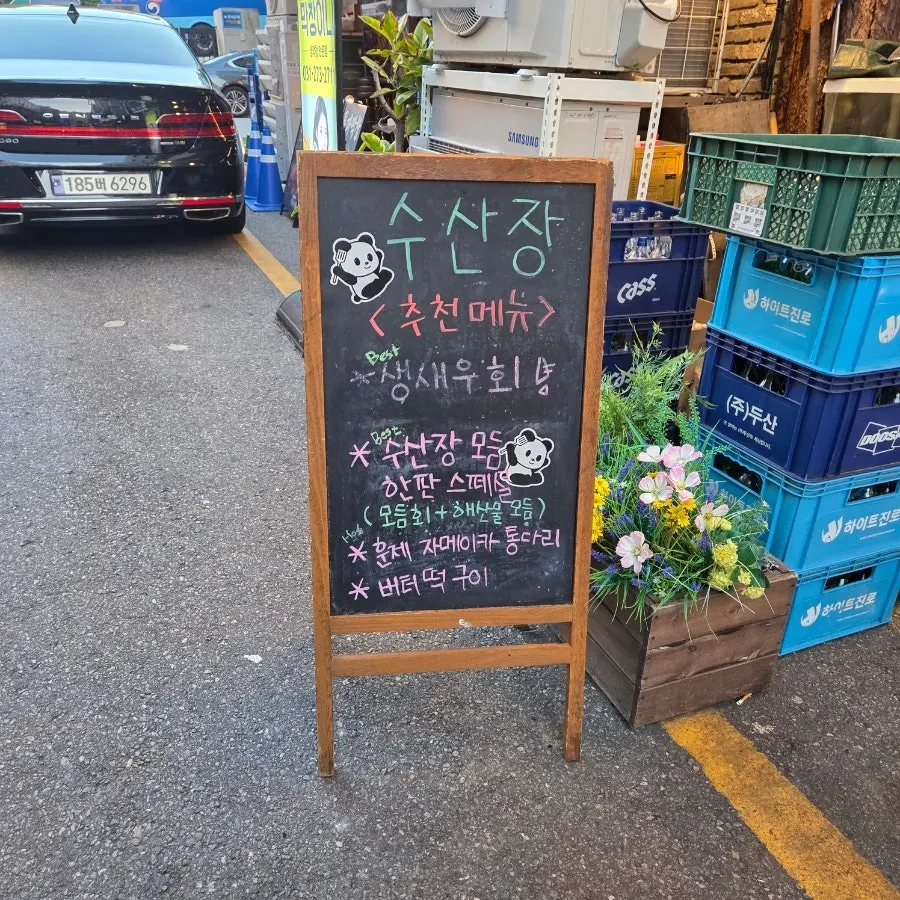 수산장
<추천메뉴>
Best
*생새우회
Best
* 수산장 모듬
한판 스페셜
(모듬회+해산물 모듬)
* 훈제 자메이카 통다리
* 버터떡구이
185버 6296
SAMSUNG
Cass
하이트진로
(주)두산
DOOSAN
하이트진로
하이트진로